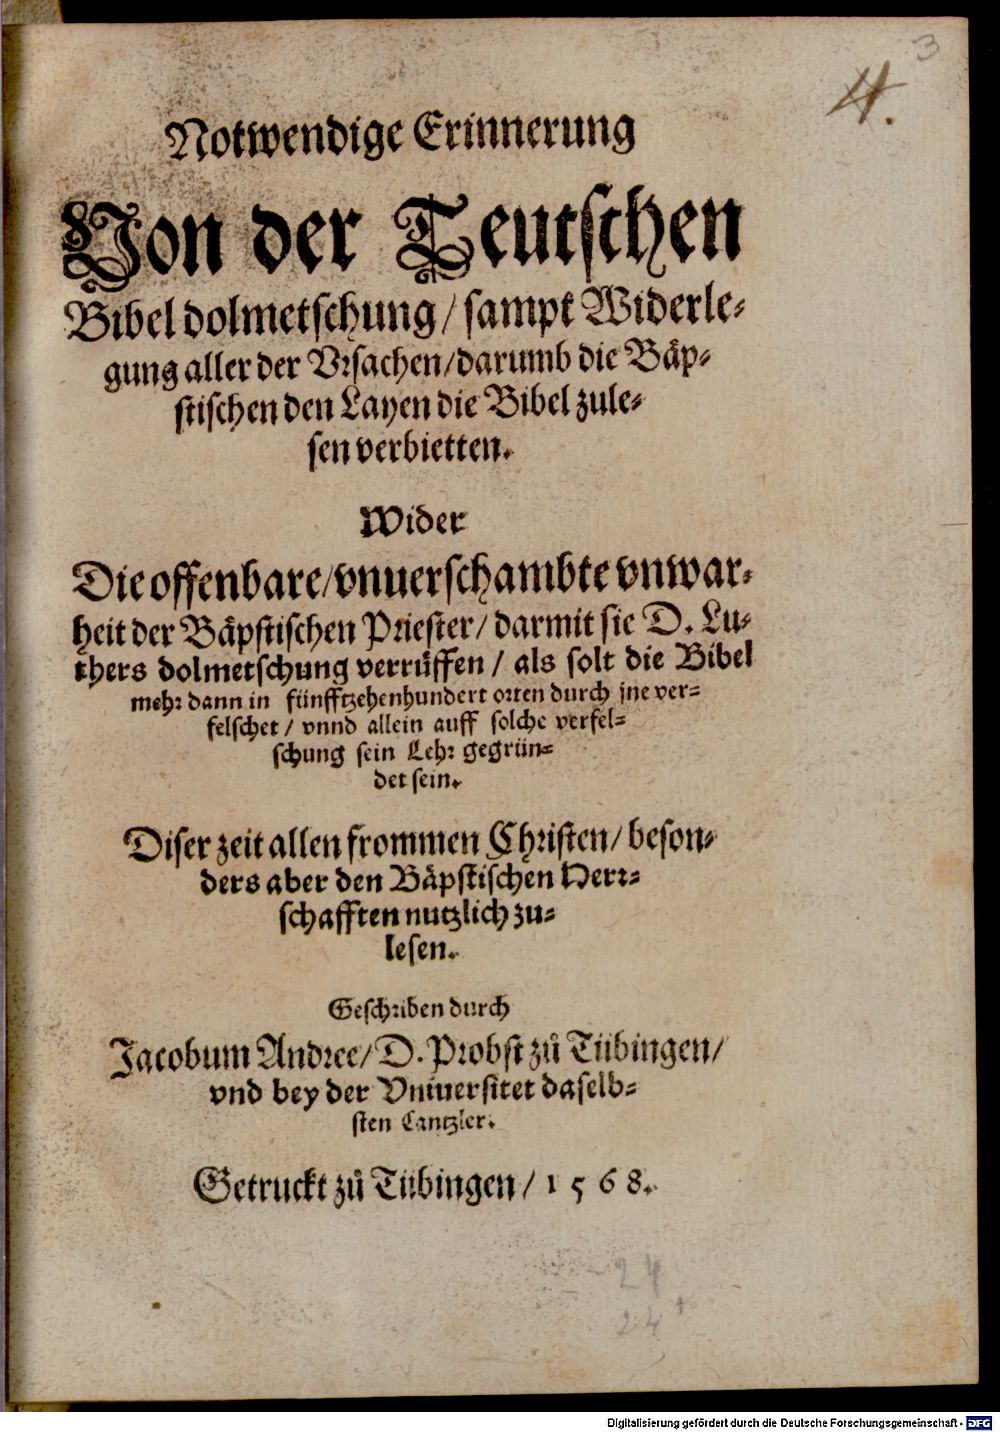 3
4.
Notwendige Erinnerung
Von der Teutschen
Bibel dolmetschung / sampt Widerle⸗
gung aller der Vrsachen / darumb die Bäp⸗
stischen den Layen die Bibel zule⸗
sen verbietten.
Wider
Die offenbare / vnuerschambte vnwar⸗
heit der Bäpstischen Priester / darmit sie D. Lu⸗
thers dolmetschung verrüffen / als solt die Bibel
mehr dann in fünfftzehenhundert orten durch jne ver⸗
felschet / vnnd allein auff solche verfel⸗
schung sein Lehr gegrün⸗
det sein.
Diser zeit allen frommen Christen / beson⸗
ders aber den Bäpstischen Herr⸗
schafften nutzlich zu⸗
lesen.
Geschriben durch
Jacobum Andree / D. Probst zů Tübingen /
vnd bey der Vniuersitet daselb⸗
sten Cantzler.
Getruckt zů Tübingen / 1568.
24
24+
Digitalisierung gefördert durch die Deutsche Forschungsgemeinschaft - DFG